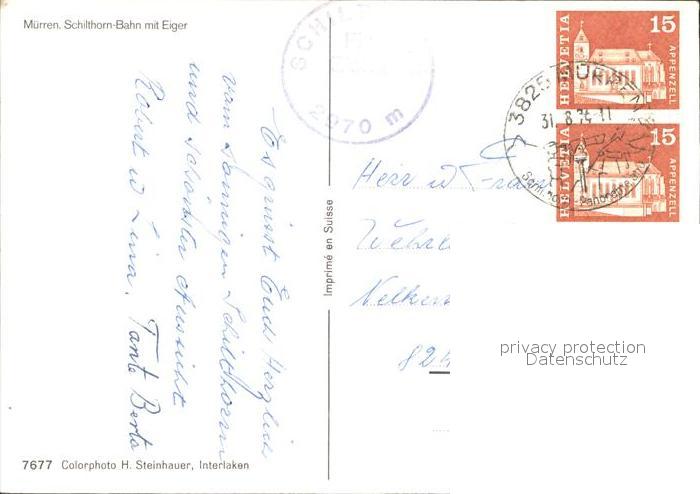 Mürren. Schilthorn-Bahn mit Eiger
Es grüsst Euch Herzlich
vom sonnigen Schilthorn
und schönster Aussicht
Robert u Lina. Tante Berta
7677 Colorphoto H. Steinhauer, Interlaken
Imprimé en Suisse
2970 m
HELVETIA 15 APPENZELL
3825 MÜRREN
31.8.74-11
HELVETIA 15 APPENZELL
Herr u
Nelken
824
privacy protection
Datenschutz